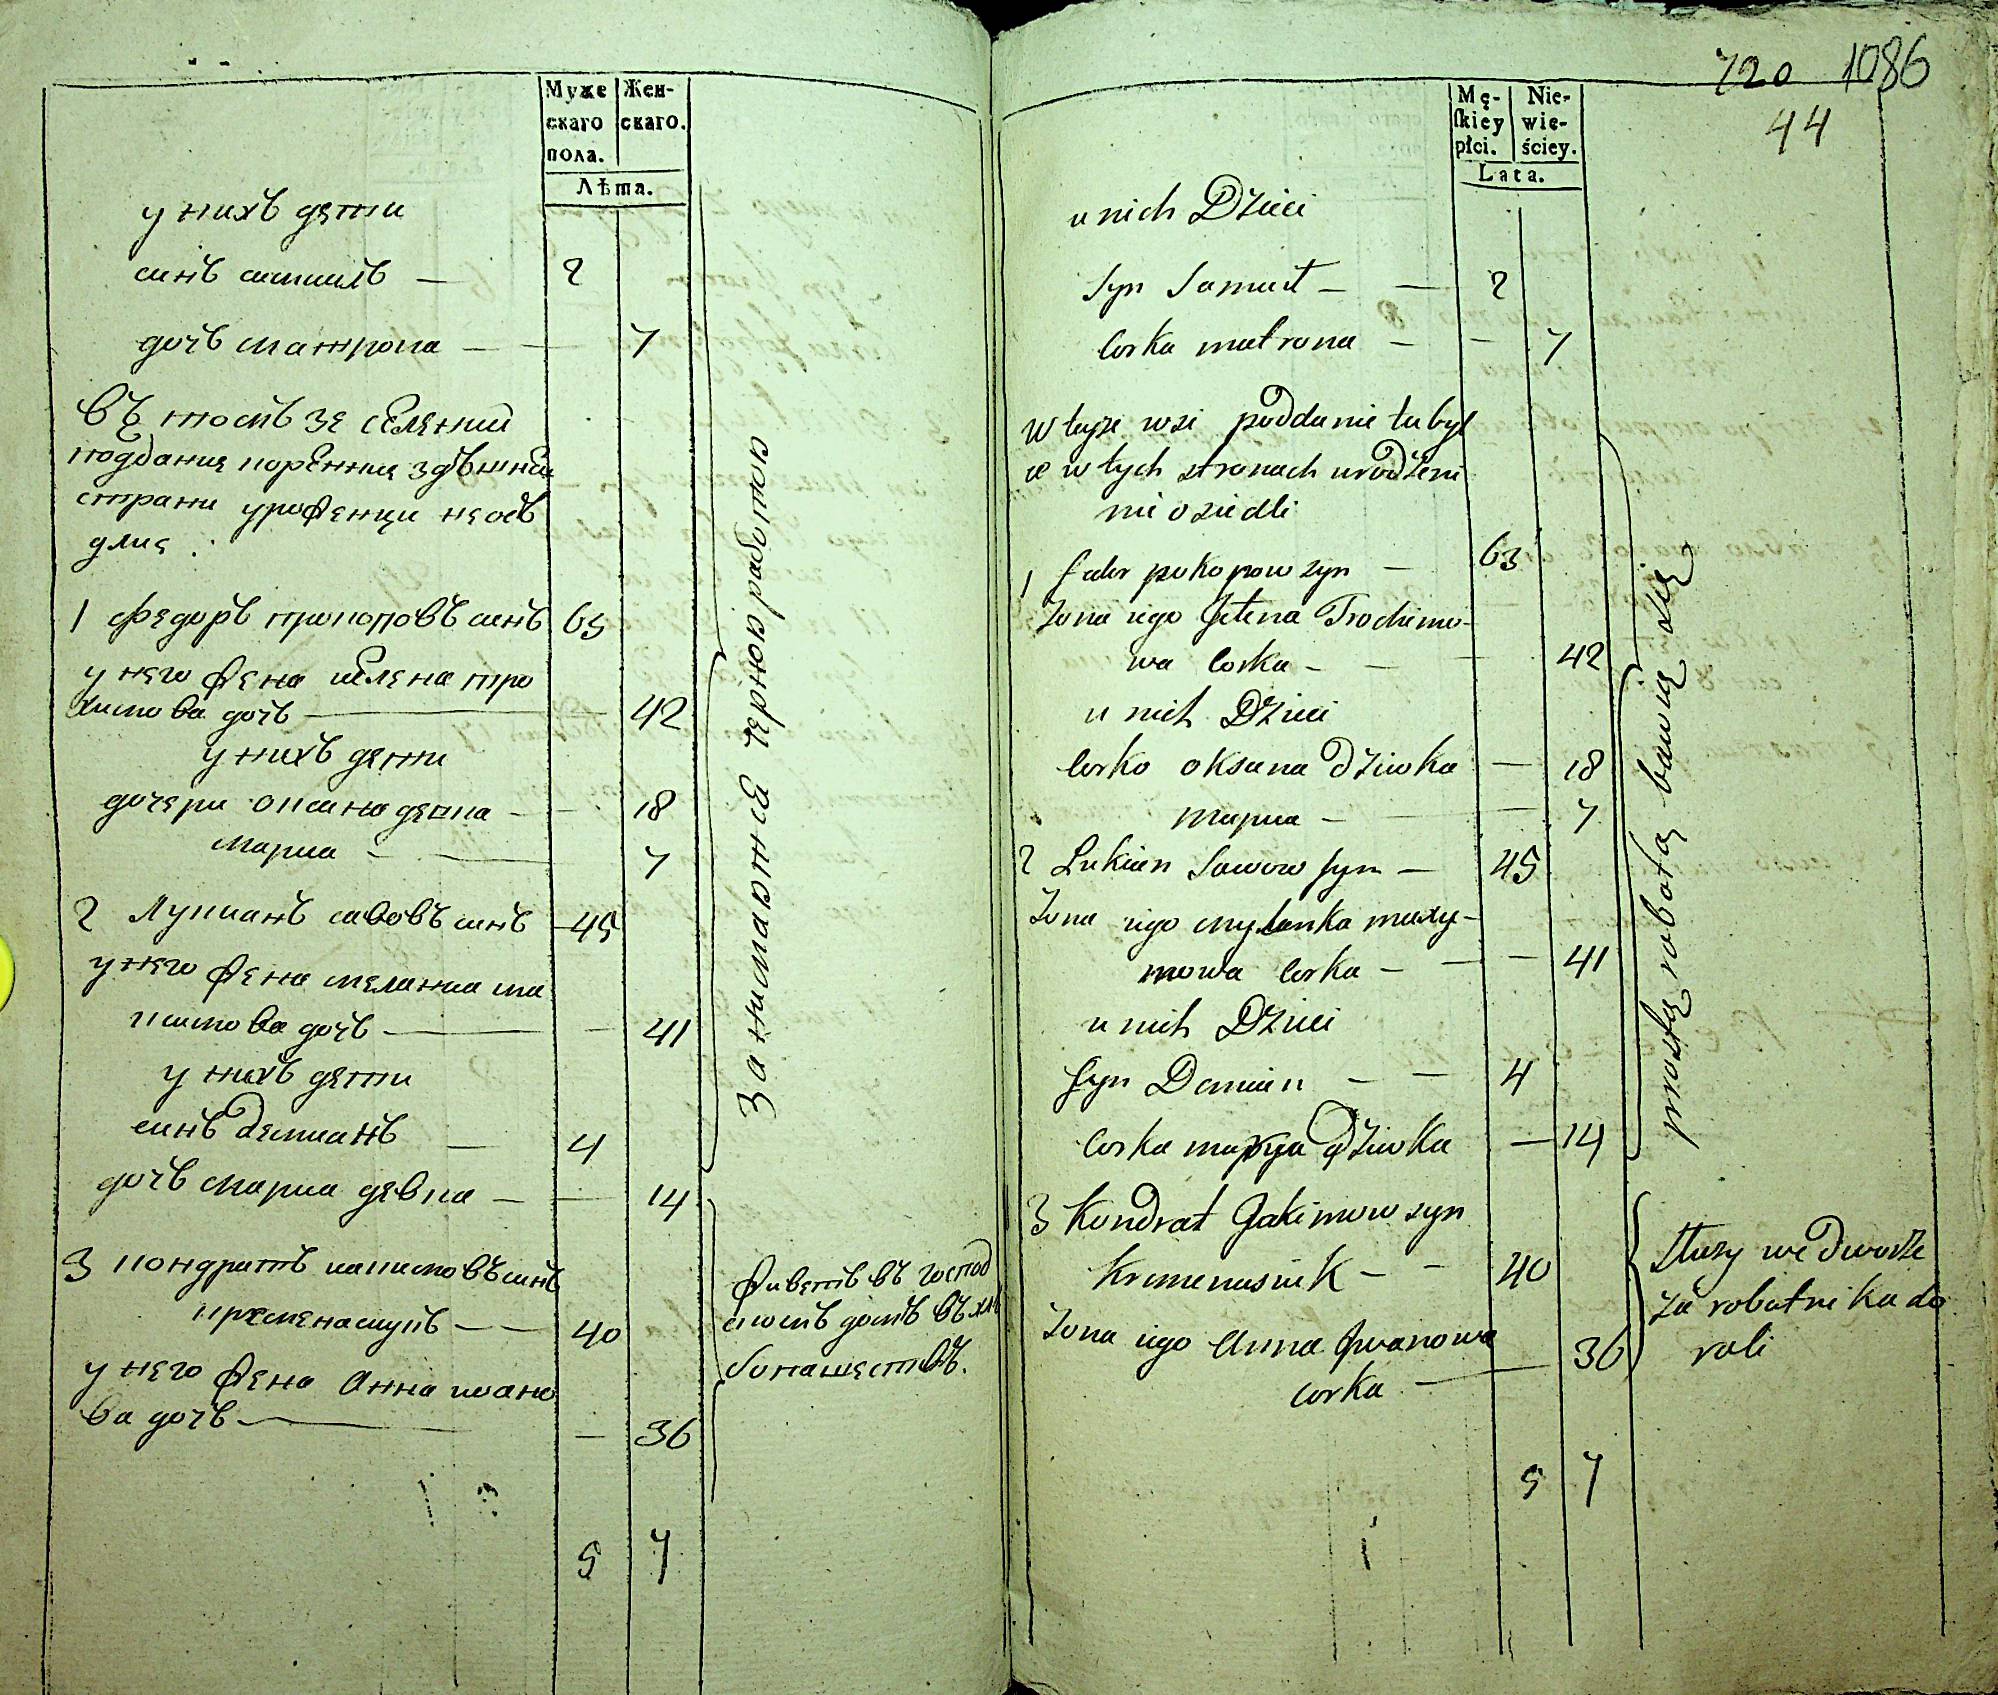 Муже
скаго
пола.
Жен-
скаго.
Лѣта.
у нихъ дети
синъ самуилъ — 2
дочъ матрона — 7
Въ томъ зе селении
поддание коренние здѣшней
страни уроженци неосѣ
длие
1 Федоръ прокоповъ синъ 63
у него жена иелена тро
химова дочъ — 42
у нихъ дети
дочери оксана девка — 18
мариа — 7
2 Лукианъ савовъ синъ — 45
у него жена меланиа ма
ксимова дочъ — 41
у нихъ дети
синъ демианъ — 4
дочъ мариа девка — 14
3 кондратъ иакимовъ синъ
кременасцукъ — 40
у него жена Анна ивано
ва дочъ — 36
5 7
Занимаютса Черною работою
живетъ въ господ
скомъ доме въ хле
бопашествѣ.
720 1086
44
Mę-
skiey
płci.
Nie-
wie-
ściey.
Lata.
u nich Dzieci
syn Samuel — 2
Corka matrona — 7
w teyze wsi poddanie tubyl
ce w tych stronach urodzeni
nie osiedli
1 fedor prokopow syn — 63
Zona iego Jelena Trochimo-
wa Corka — 42
u nich Dzieci
Corko oksana Dziwka — 18
мариа — 7
2 Lukian Sawow syn — 45
Zona iego Mylanka maxy-
mowa Corka — 41
u nich Dzieci
syn Demian — 4
Corka maryia Dziwka — 14
3 Kondrat Jakimow syn
Kremenasiuk — 40
Zona iego Anna Jwanowa
corka — 36
5 7
prostą robotą bawią się
Sluzy we dworze
za robotnika do
roli